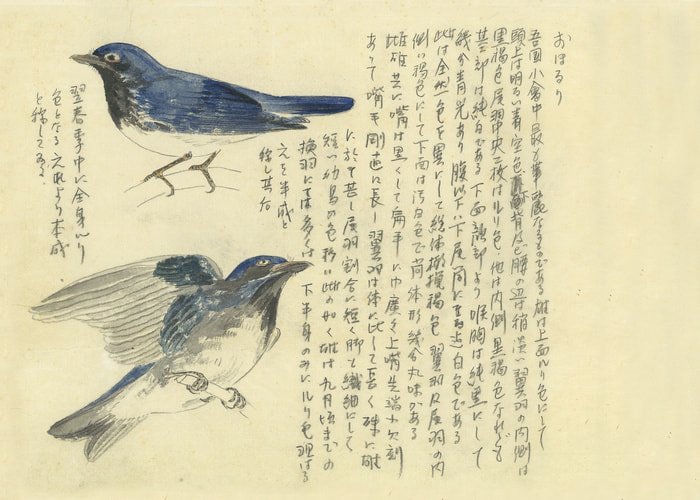 おほるり
吾国小禽中最も華麗なるものである雄は上面ルリ色にして
頭上は明るい青空色 背及び腰の辺は稍淡い翼羽の内側は
黒褐色尾羽中央二枚はルリ色他は内側黒褐色なれども
基部は純白である下面顔部より喉胸は純黒にして
幾分青光あり腹以下ハ下尾筒に至る迄白色である
雌は全然色を異にして総体橄欖褐色翼羽及尾羽の内
側ハ褐色にして下面は汚白色で荷体形幾分丸味がある
雌雄共に嘴は黒くして扁平に巾廣く上嘴先端ニ欠刻
ありて嘴毛剛直に長し翼羽は体に比して長く殊に雄
に於て甚し尾羽割合に短く脚も繊細にして
短い幼鳥の色彩は此の如く雄は九月頃までの
換羽にては多くは下半身のみにルリ色現はる
之を半成と
称し其后
翌春季中に全身ルリ
色となる之れより本成
と称してゐる